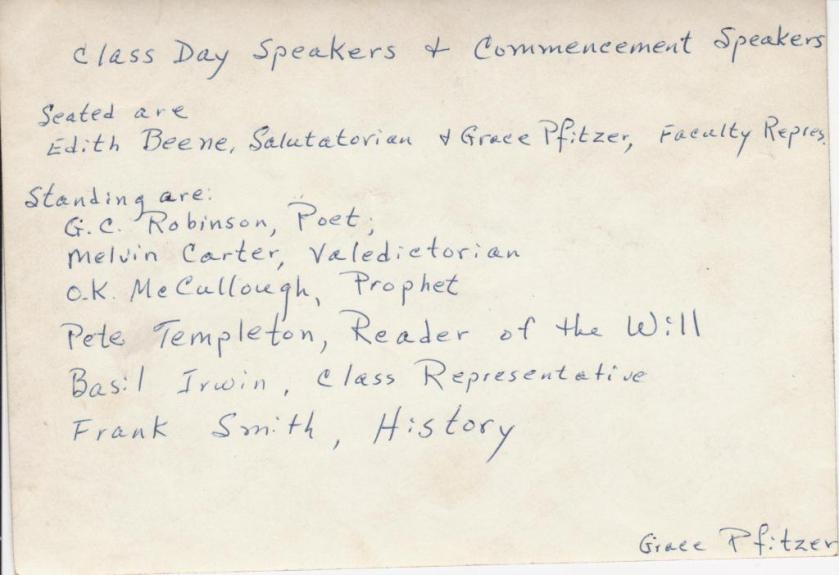 Class Day Speakers & Commencement Speakers
Seated are
Edith Beene, Salutatorian & Grace Pfitzer, Faculty Repres.
Standing are:
G.C. Robinson, Poet;
Melvin Carter, Valedictorian
O.K. McCullough, Prophet
Pete Templeton, Reader of the Will
Basil Irwin, Class Representative
Frank Smith, History
Grace Pfitzer